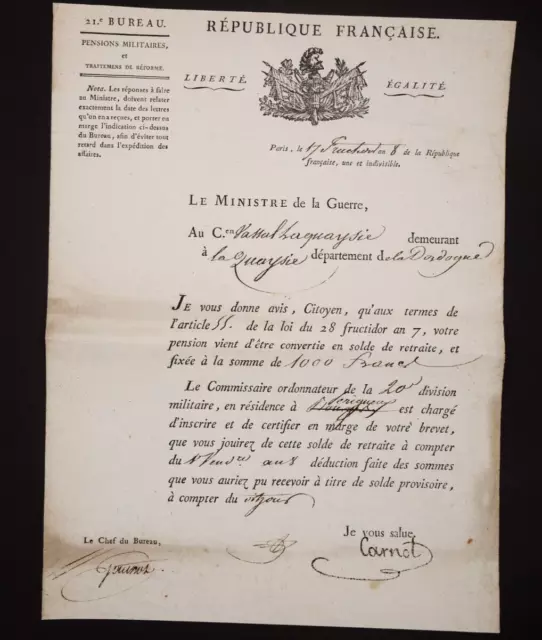 21.e BUREAU.
PENSIONS MILITAIRES,
et
TRAITEMENS DE RÉFORME.
Nota. Les réponses à faire
au Ministre, doivent relater
exactement la date des lettres
qu'on en a reçues, et porter en
marge l'indication ci-dessus
du Bureau, afin d'éviter tout
retard dans l'expédition des
affaires.
RÉPUBLIQUE FRANÇAISE.
LIBERTÉ.
ÉGALITÉ.
Paris, le 17 Fructidor an 8 de la République
française, une et indivisible.
LE MINISTRE de la Guerre,
Au C.en Vassal Laquaysie demeurant
à la Quaysie département de la Dordogne
JE vous donne avis, Citoyen, qu'aux termes de
l'article 55. de la loi du 28 fructidor an 7, votre
pension vient d'être convertie en solde de retraite, et
fixée à la somme de 1000 francs
Le Commissaire ordonnateur de la 20e division
militaire, en résidence à Périgueux est chargé
d'inscrire et de certifier en marge de votre brevet,
que vous jouirez de cette solde de retraite à compter
du 1er Vend.re an 8 déduction faite des sommes
que vous auriez pu recevoir à titre de solde provisoire,
à compter du dit jour
Je vous salue,
Carnot
Le Chef du Bureau,